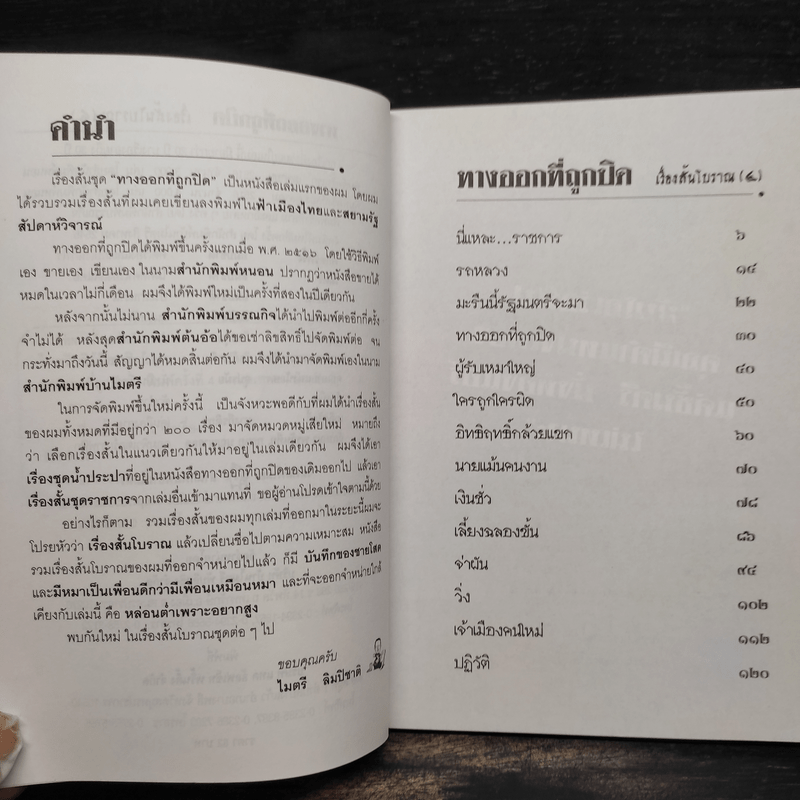 คำนำ
เรื่องสั้นชุด "ทางออกที่ถูกปิด" เป็นหนังสือเล่มแรกของผม โดยผม
ได้รวบรวมเรื่องสั้นที่ผมเคยเขียนลงพิมพ์ในฟ้าเมืองไทยและสยามรัฐ
สัปดาห์วิจารณ์
ทางออกที่ถูกปิดได้พิมพ์ขึ้นครั้งแรกเมื่อ พ.ศ. ๒๕๑๖ โดยใช้วิธีพิมพ์
เอง ขายเอง เขียนเอง ในนามสำนักพิมพ์หนอน ปรากฏว่าหนังสือขายได้
หมดในเวลาไม่กี่เดือน ผมจึงได้พิมพ์ใหม่เป็นครั้งที่สองในปีเดียวกัน
หลังจากนั้นไม่นาน สำนักพิมพ์บรรณกิจได้นำไปพิมพ์ต่ออีกกี่ครั้ง
จำไม่ได้ หลังสุดสำนักพิมพ์ต้นอ้อได้ขอเช่าลิขสิทธิ์ไปจัดพิมพ์ต่อ จน
กระทั่งมาถึงวันนี้ สัญญาได้หมดสิ้นต่อกัน ผมจึงได้นำมาจัดพิมพ์เองในนาม
สำนักพิมพ์บ้านไมตรี
ในการจัดพิมพ์ขึ้นใหม่ครั้งนี้ เป็นจังหวะพอดีกับที่ผมได้นำเรื่องสั้น
ของผมทั้งหมดที่มีอยู่กว่า ๒๐๐ เรื่อง มาจัดหมวดหมู่เสียใหม่ หมายถึง
ว่า เลือกเรื่องสั้นในแนวเดียวกันให้มาอยู่ในเล่มเดียวกัน ผมจึงได้เอา
เรื่องชุดน้ำประปาที่อยู่ในหนังสือทางออกที่ถูกปิดของเดิมออกไป แล้วเอา
เรื่องสั้นชุดราชการจากเล่มอื่นเข้ามาแทนที่ ขอผู้อ่านโปรดเข้าใจตามนี้ด้วย
อย่างไรก็ตาม รวมเรื่องสั้นของผมทุกเล่มที่ออกมาในระยะนี้ผมจะ
โปรยหัวว่า เรื่องสั้นโบราณ แล้วเปลี่ยนชื่อไปตามความเหมาะสม หนังสือ
รวมเรื่องสั้นโบราณของผมที่ออกจำหน่ายไปแล้ว ก็มี บันทึกของชายโสด
และมีหมาเป็นเพื่อนดีกว่ามีเพื่อนเหมือนหมา และที่จะออกจำหน่ายใกล้
เคียงกับเล่มนี้ คือ หล่อนต่ำเพราะอยากสูง
พบกันใหม่ ในเรื่องสั้นโบราณชุดต่อ ๆ ไป
ขอบคุณครับ
ไมตรี ลิมปิชาติ
ทางออกที่ถูกปิด เรื่องสั้นโบราณ (๔)
นี่แหละ...ราชการ ๖
รถหลวง ๑๔
มะรืนนี้รัฐมนตรีจะมา ๒๒
ทางออกที่ถูกปิด ๓๐
ผู้รับเหมาใหญ่ ๔๐
ใครถูกใครผิด ๕๐
อิทธิฤทธิ์กล้วยแขก ๖๐
นายแม้นคนงาน ๗๐
เงินชั่ว ๗๘
เลี้ยงฉลองขั้น ๘๖
จ่าผัน ๙๔
วิ่ง ๑๐๒
เจ้าเมืองคนใหม่ ๑๑๒
ปฏิวัติ ๑๒๐